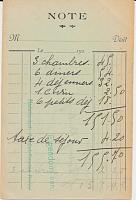 NOTE
M Doit
Le 190
3 chambres 45
6 diners 54
4 déjeuners
1 C. vin 2.50
6 petits dej 18
151.50
Taxe de séjour 4.20
155.70